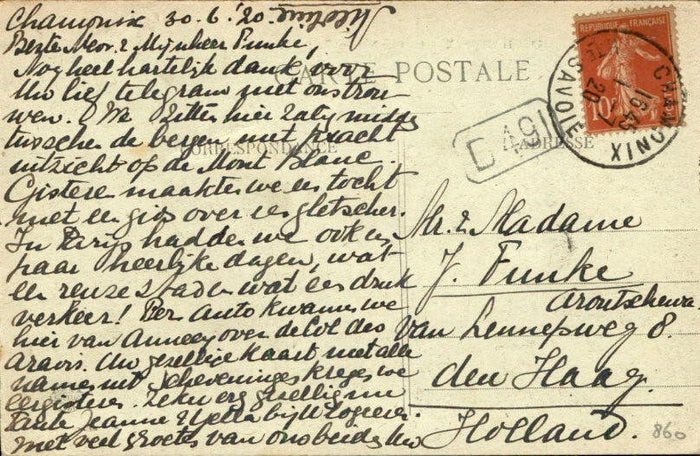 Chamonix 30.6.'20.
Beste Mevr. & Mijnheer Funke,
Nog heel hartelijk dank voor
Uw lief telegram met ons trou
wen. We zitten hier zalig midde
tusschen de bergen met pracht
uitzicht op de Mont Blanc.
Gisteren maakten we een tocht
met een gids over een gletscher.
In Parijs hadden we ook een
paar heerlijke dagen, wat
een reuze stad en wat een druk
verkeer! Per auto kwamen we
hier van Annecy over de col des
Aravis. Uw gezellige kaart met alle
namen uit Scheveningen kregen we
eergisteren. Zeker erg gezellig nu
Tante Jeanne & Nella bij U logeeren.
Met veel groeten van ons beiden Uw
CARTE POSTALE
CORRESPONDANCE
ADRESSE
RÉPUBLIQUE FRANÇAISE
10c
CHAMONIX
16 45
1-7
20
SAVOIE
D 1519
Mr. & Madame
J. Funke
van Lennepweg 8.
den Haag.
Holland.
860